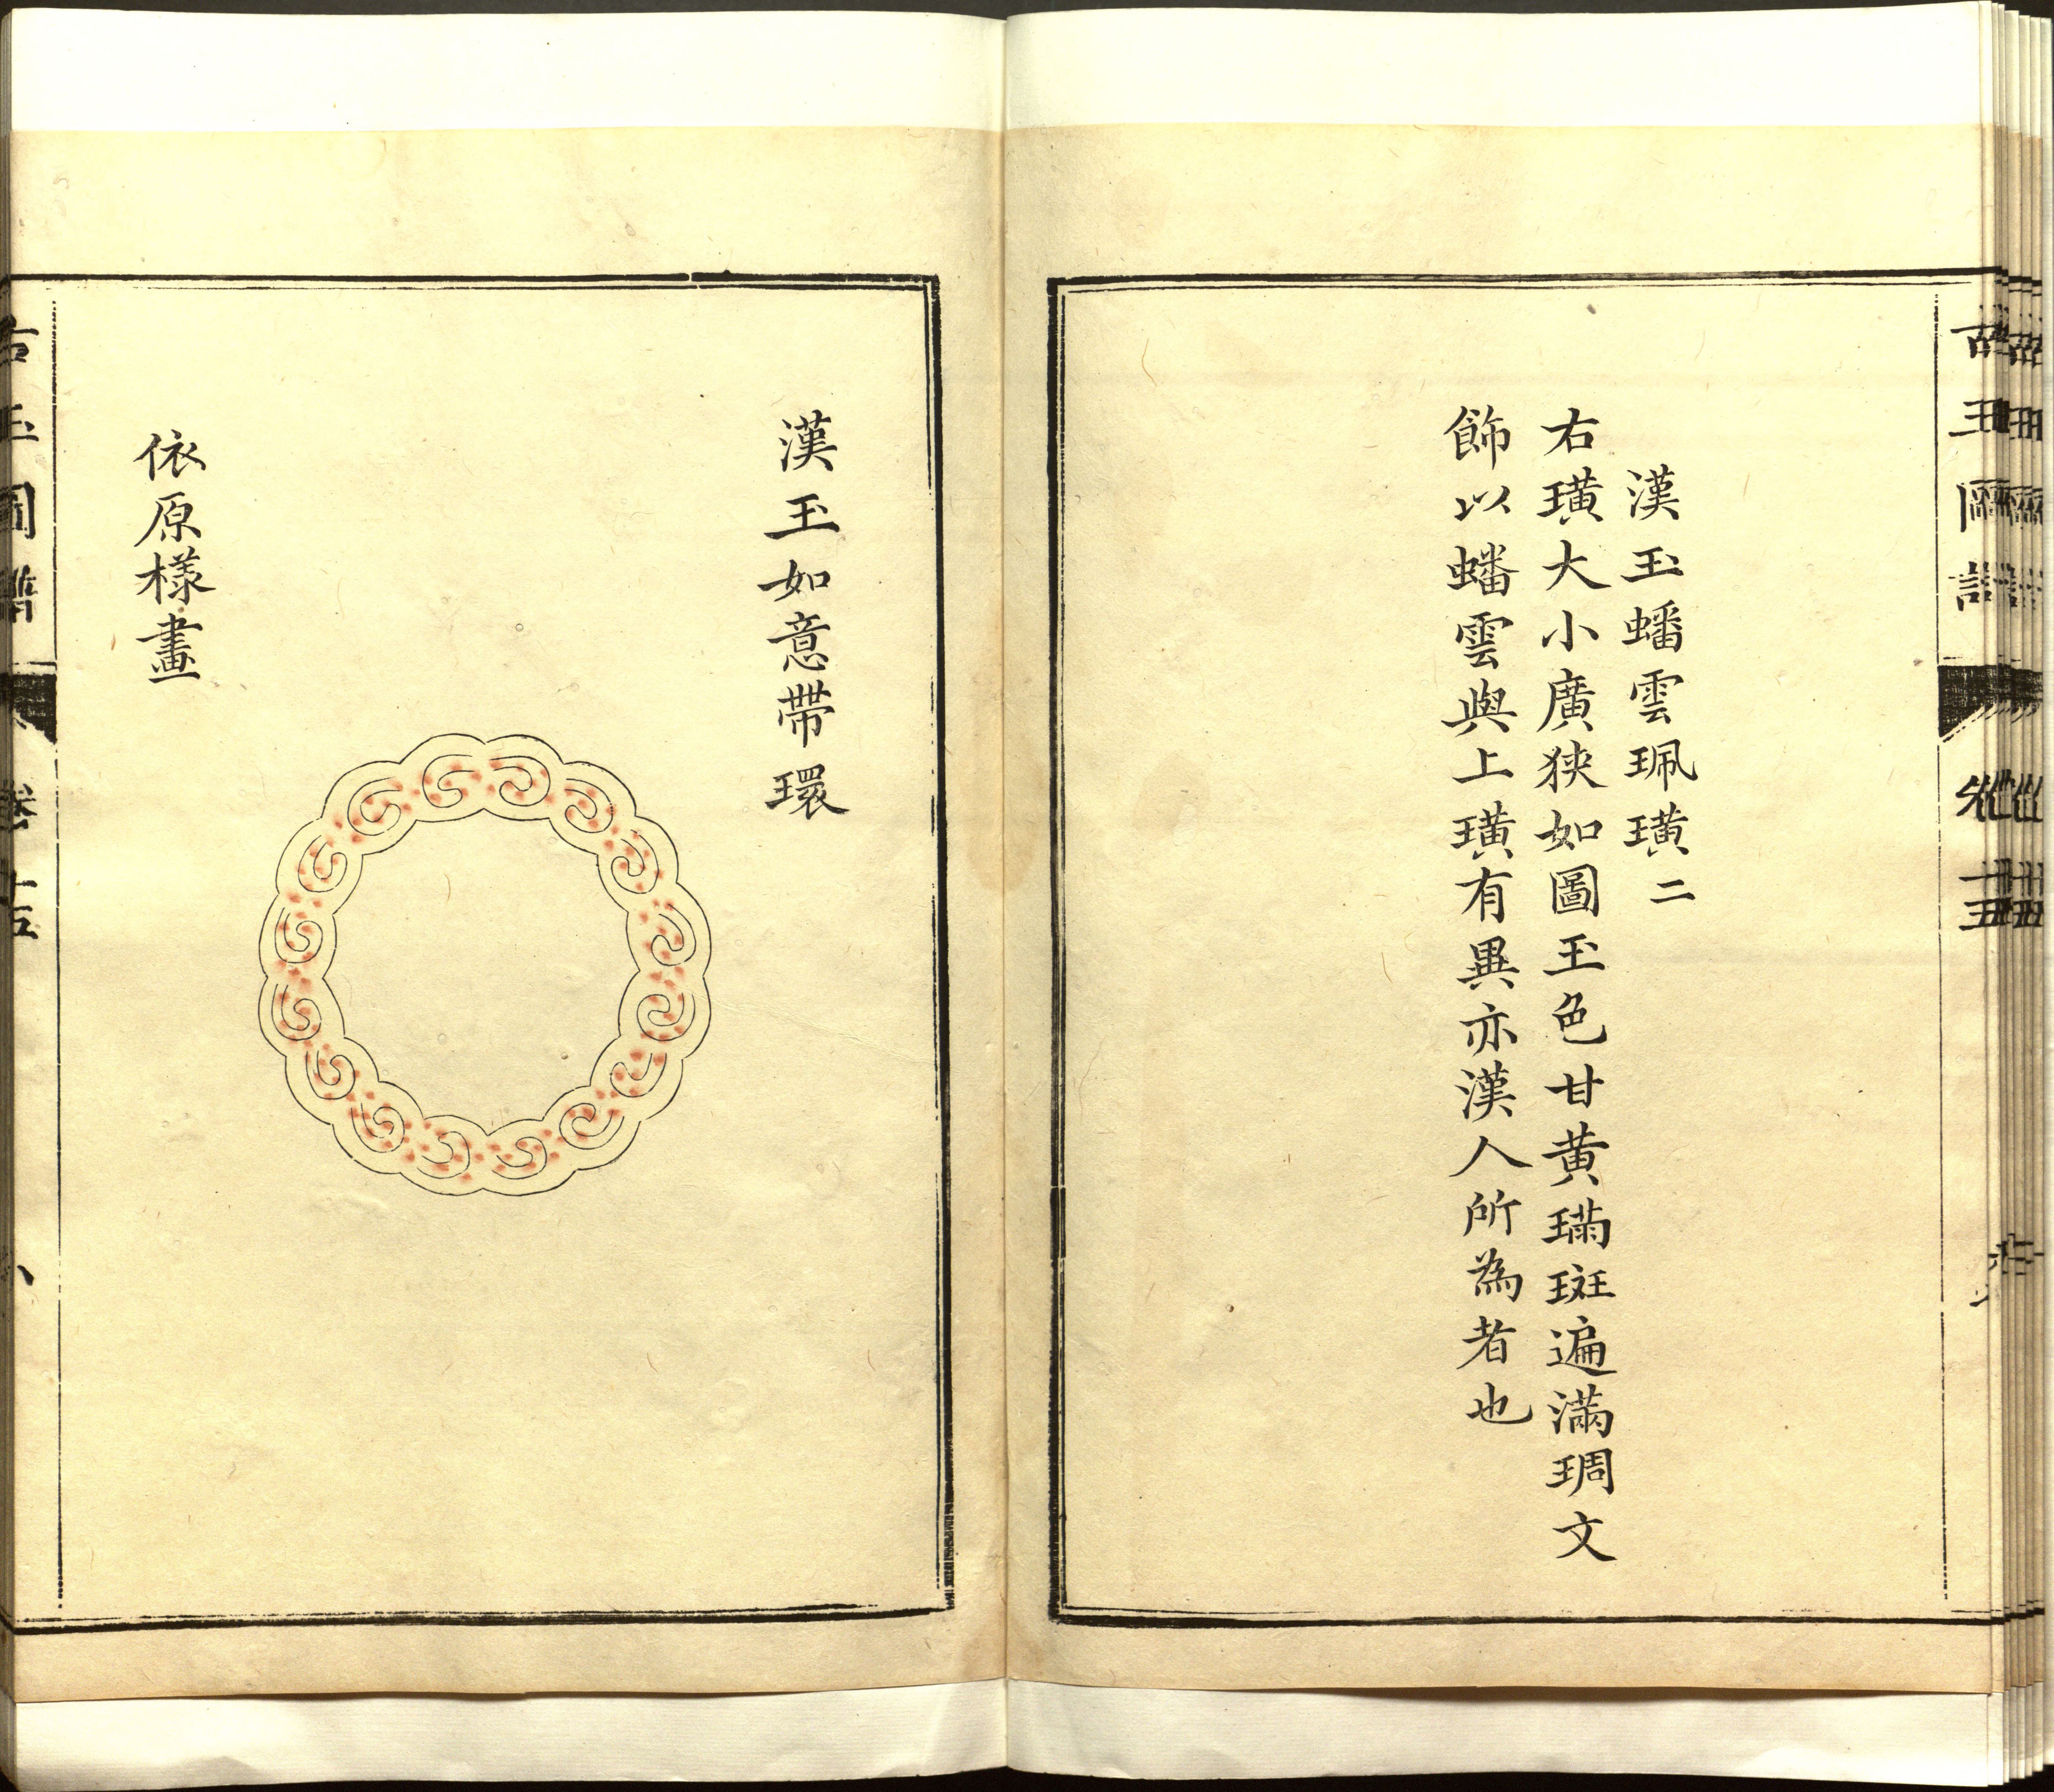 漢玉蟠雲珮璜二
右璜大小廣狹如圖玉色甘黄璊斑遍滿琱文
飾以蟠雲與上璜有異亦漢人所為者也
漢玉如意帶環
依原樣畫
古玉圖譜
卷十五